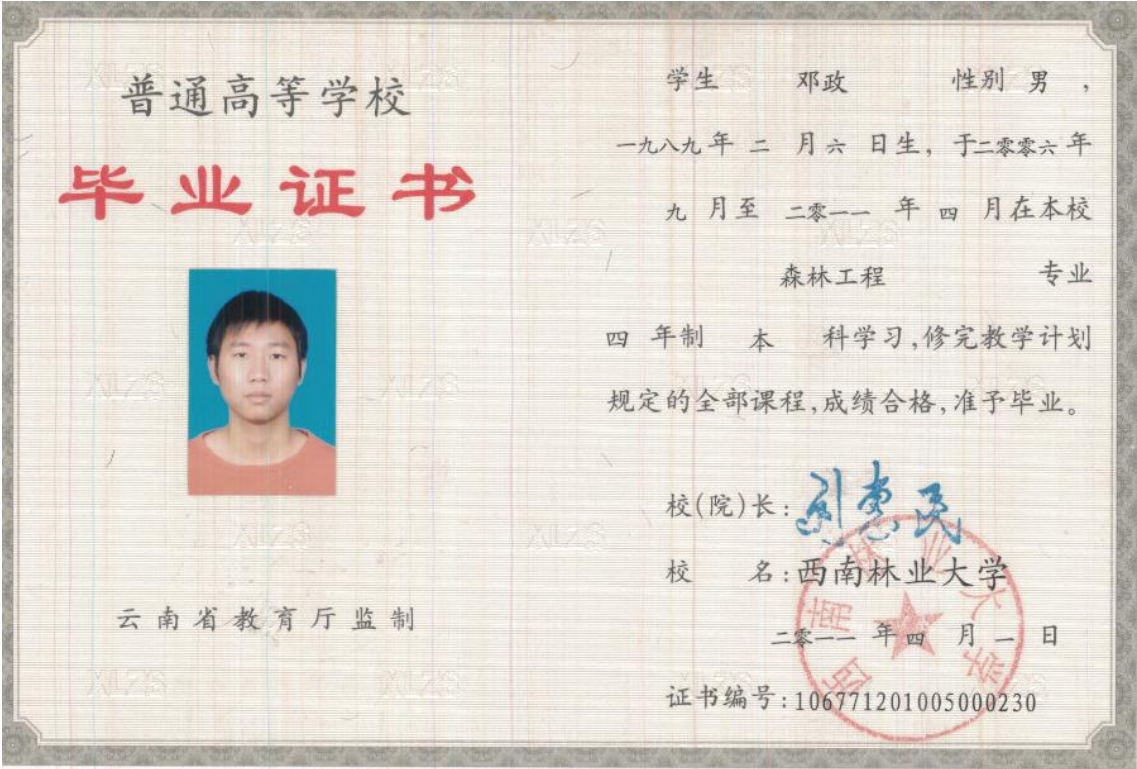 普通高等学校
毕业证书
云南省教育厅监制
学生 邓政 性别 男,
一九八九年 二 月 六 日生, 于二零零六年
九 月至 二零一一 年 四 月在本校
森林工程 专业
四 年制 本 科学习,修完教学计划
规定的全部课程,成绩合格,准予毕业。
校(院)长: 刘惠民
校 名:西南林业大学
二零一一 年 四 月 一 日
证书编号:106771201005000230
西南林业大学
XLZS